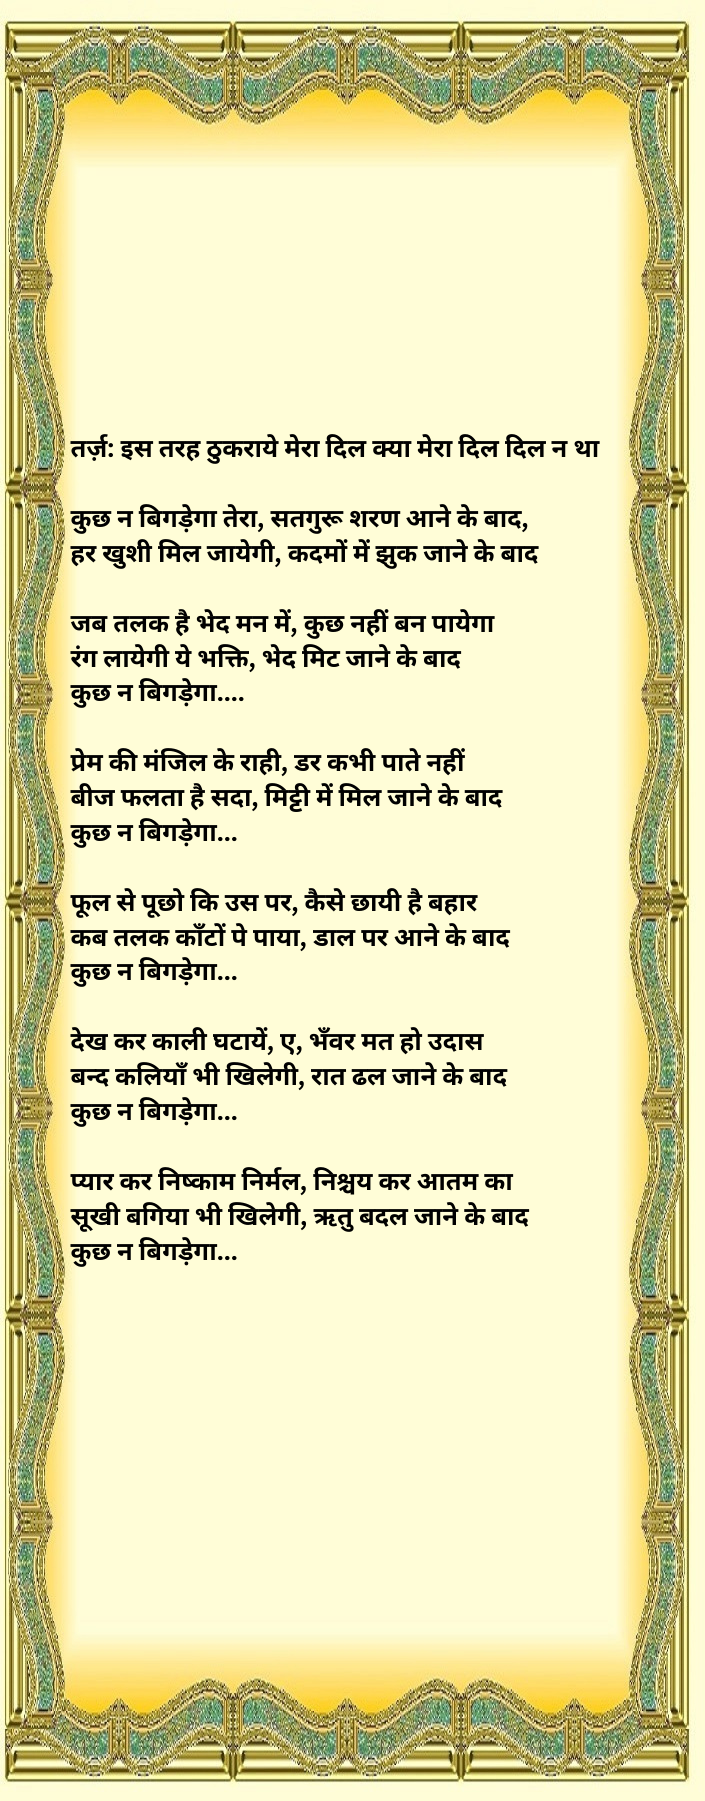 तर्ज़: इस तरह ठुकराये मेरा दिल क्या मेरा दिल दिल न था
कुछ न बिगड़ेगा तेरा, सतगुरू शरण आने के बाद,
हर खुशी मिल जायेगी, कदमों में झुक जाने के बाद
जब तलक है भेद मन में, कुछ नहीं बन पायेगा
रंग लायेगी ये भक्ति, भेद मिट जाने के बाद
कुछ न बिगड़ेगा....
प्रेम की मंजिल के राही, डर कभी पाते नहीं
बीज फलता है सदा, मिट्टी में मिल जाने के बाद
कुछ न बिगड़ेगा...
फूल से पूछो कि उस पर, कैसे छायी है बहार
कब तलक काँटों पे पाया, डाल पर आने के बाद
कुछ न बिगड़ेगा...
देख कर काली घटायें, ए, भँवर मत हो उदास
बन्द कलियाँ भी खिलेगी, रात ढल जाने के बाद
कुछ न बिगड़ेगा...
प्यार कर निष्काम निर्मल, निश्चय कर आतम का
सूखी बगिया भी खिलेगी, ऋतु बदल जाने के बाद
कुछ न बिगड़ेगा...